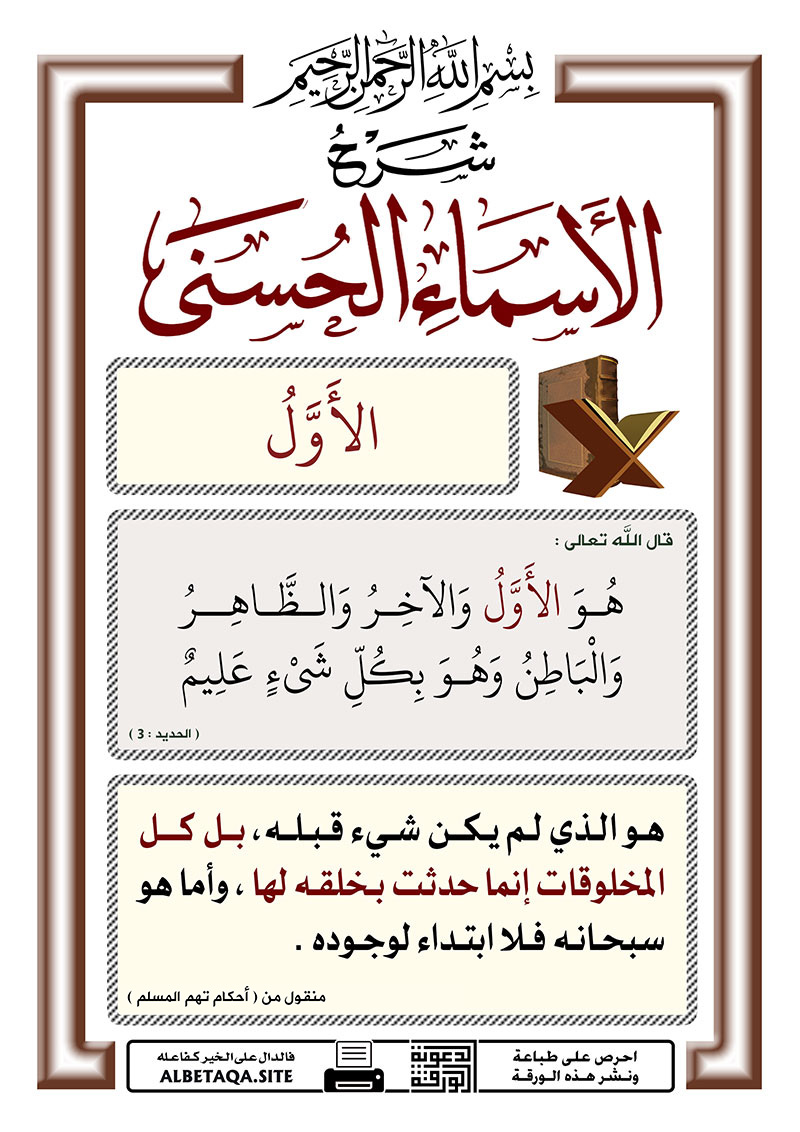 بِسْمِ اللَّهِ الرَّحْمَنِ الرَّحِيمِ
شَرْحُ
الأَسْمَاءِ الحُسْنَى
الأَوَّلُ
قال اللَّه تعالى :
هُـوَ الأَوَّلُ وَالآخِـرُ وَالـظَّـاهِـرُ
وَالْبَاطِنُ وَهُـوَ بِكُلِّ شَيْءٍ عَلِيمٌ
( الحديد : 3 )
هو الذي لم يكن شيء قبله ، بل كل
المخلوقات إنما حدثت بخلقه لها ، وأما هو
سبحانه فلا ابتداء لوجوده .
منقول من ( أحكام تهم المسلم )
احرص على طباعة
ونشر هذه الورقة
الورقة
الدعوية
فالدال على الخير كفاعله
ALBETAQA.SITE